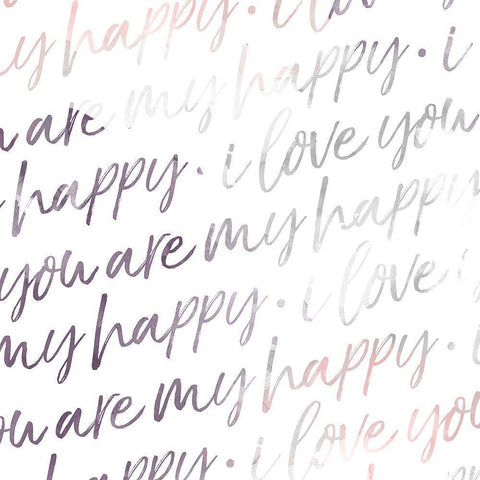 my happy · i love you
u are my happy · i
happy · i love you
you are my happy
my happy · i love y
ou are my happy · i
happy · i love you
happy